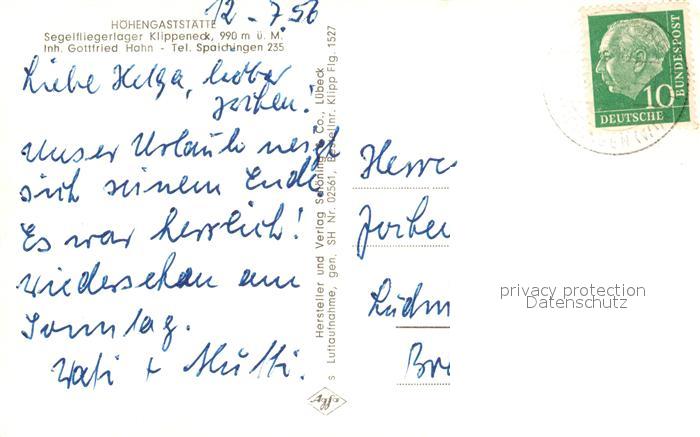 12.-7.56
HÖHENGASTSTÄTTE
Segelfliegerlager Klippeneck, 990 m ü. M.
Inh. Gottfried Hahn - Tel. Spaichingen 235
Liebe Helga, lieber
Jochen!
Unser Urlaub neigt
sich seinem Ende
Es war herrlich!
Wiedersehen am
Sonntag.
Vati + Mutti.
Hersteller und Verlag Schöning & Co., Lübeck
s Luftaufnahme, gen. SH Nr. 02561, Bestellnr. Klipp Flg. 1527
Agfa
10
DEUTSCHE
BUNDESPOST
Herrn
Jochen
Lüdm
Bre
privacy protection
Datenschutz